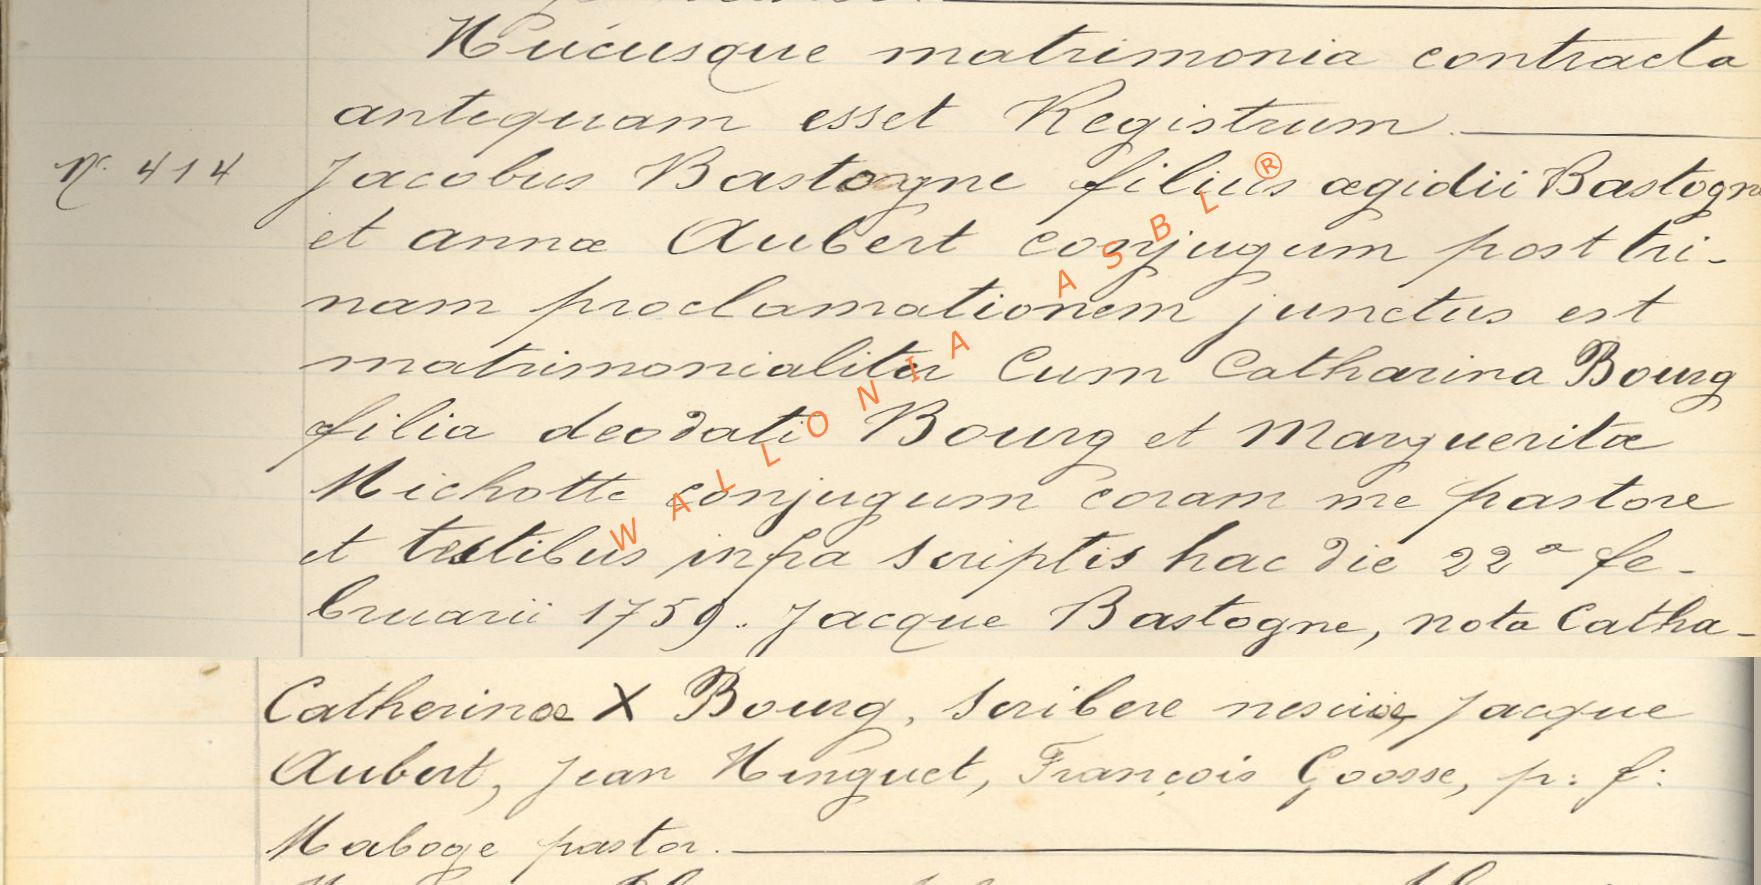 Hucusque matrimonia contracta
antequam esset Registrum.
N° 414 Jacobus Bastogne filius ægidii Bastogn
et annæ Aubert conjugum post tri-
nam proclamationem junctus est
matrimonialiter Cum Catharina Bourg
filia deodati Bourg et Margueritæ
Michotte conjugum coram me pastore
et testibus infra scriptis hac die 22ª fe-
bruarii 1759. Jacque Bastogne, nota Catha-
Catherinæ X Bourg, scribere nesciæ, Jacque
Aubert, Jean Hinguet, François Goosse, p: f:
Maboge pastor.
WALLONIA ASBL ®